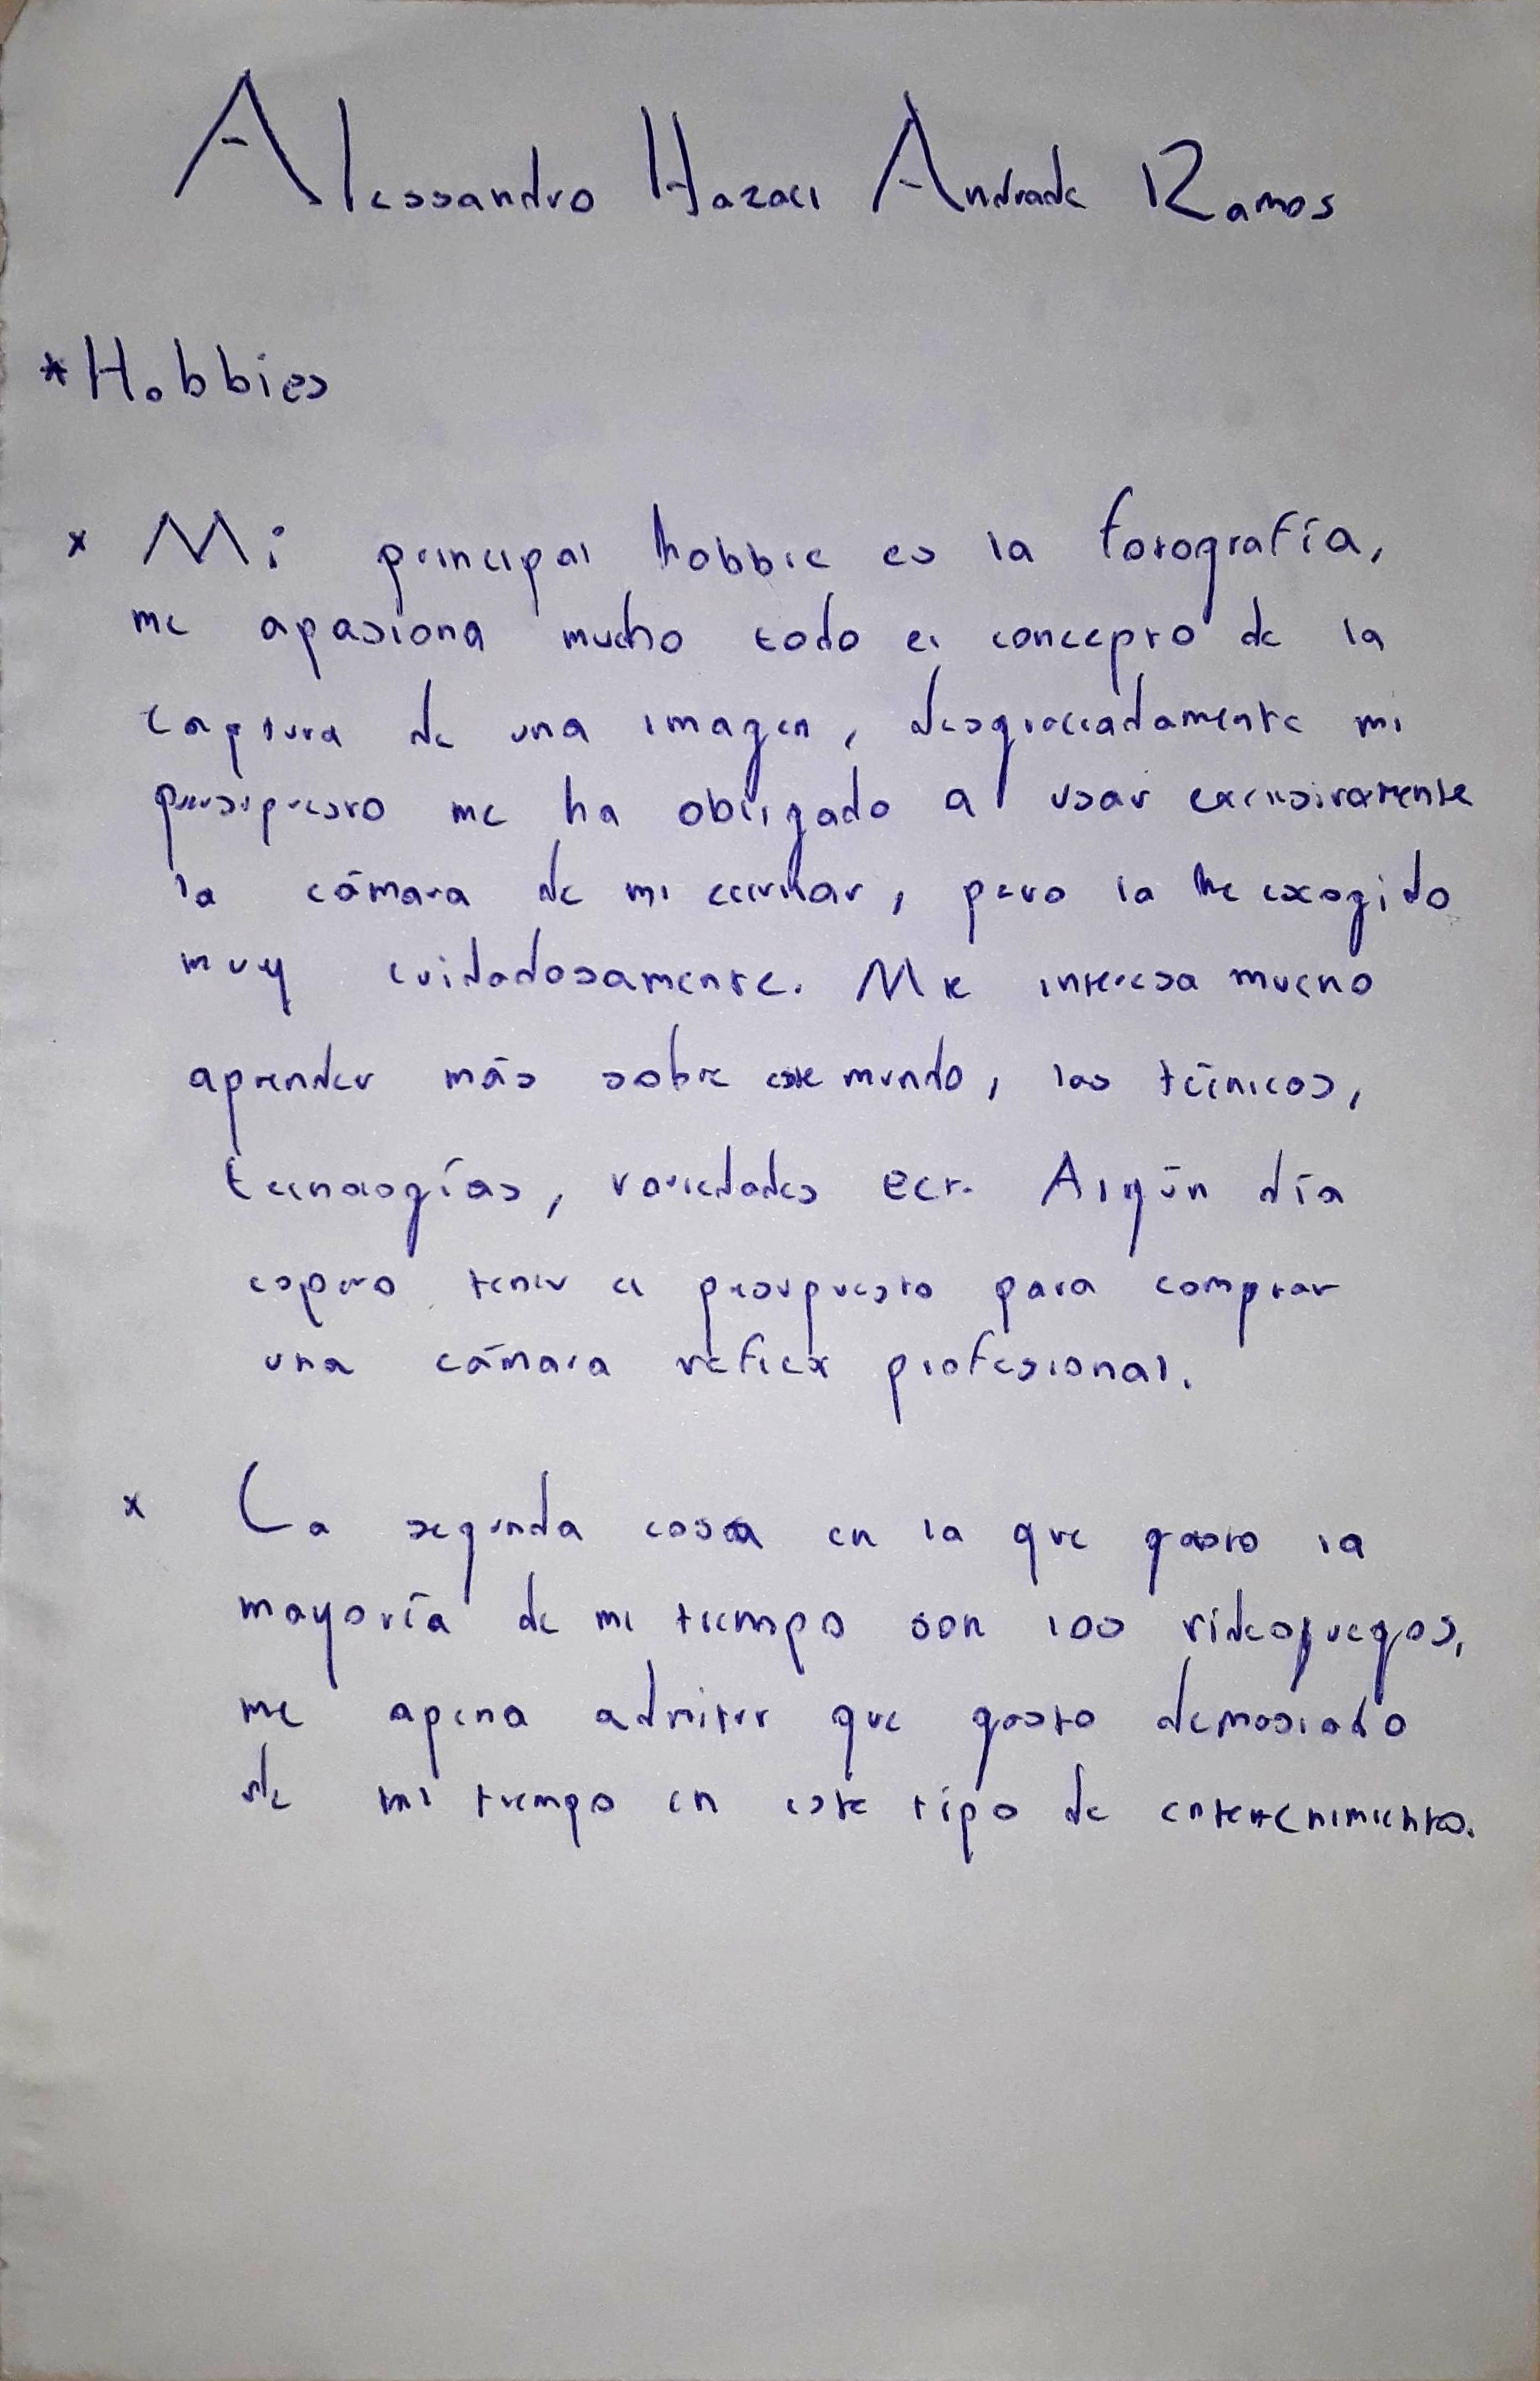 Alessandro Hazael Andrade Ramos
*Hobbies
x Mi principal hobbie es la fotografía,
me apasiona mucho todo el concepto de la
captura de una imagen, desgraciadamente mi
presupuesto me ha obligado a usar exclusivamente
la cámara de mi celular, pero la he escogido
muy cuidadosamente. Me interesa mucho
aprender más sobre este mundo, las técnicas,
tecnologías, variedades ect. Algún día
espero tener el presupuesto para comprar
una cámara reflex profesional.
x La segunda cosa en la que gasto la
mayoría de mi tiempo son los vídeojuegos,
me apena admitir que gasto demasiado
de mi tiempo en este tipo de entretenimiento.